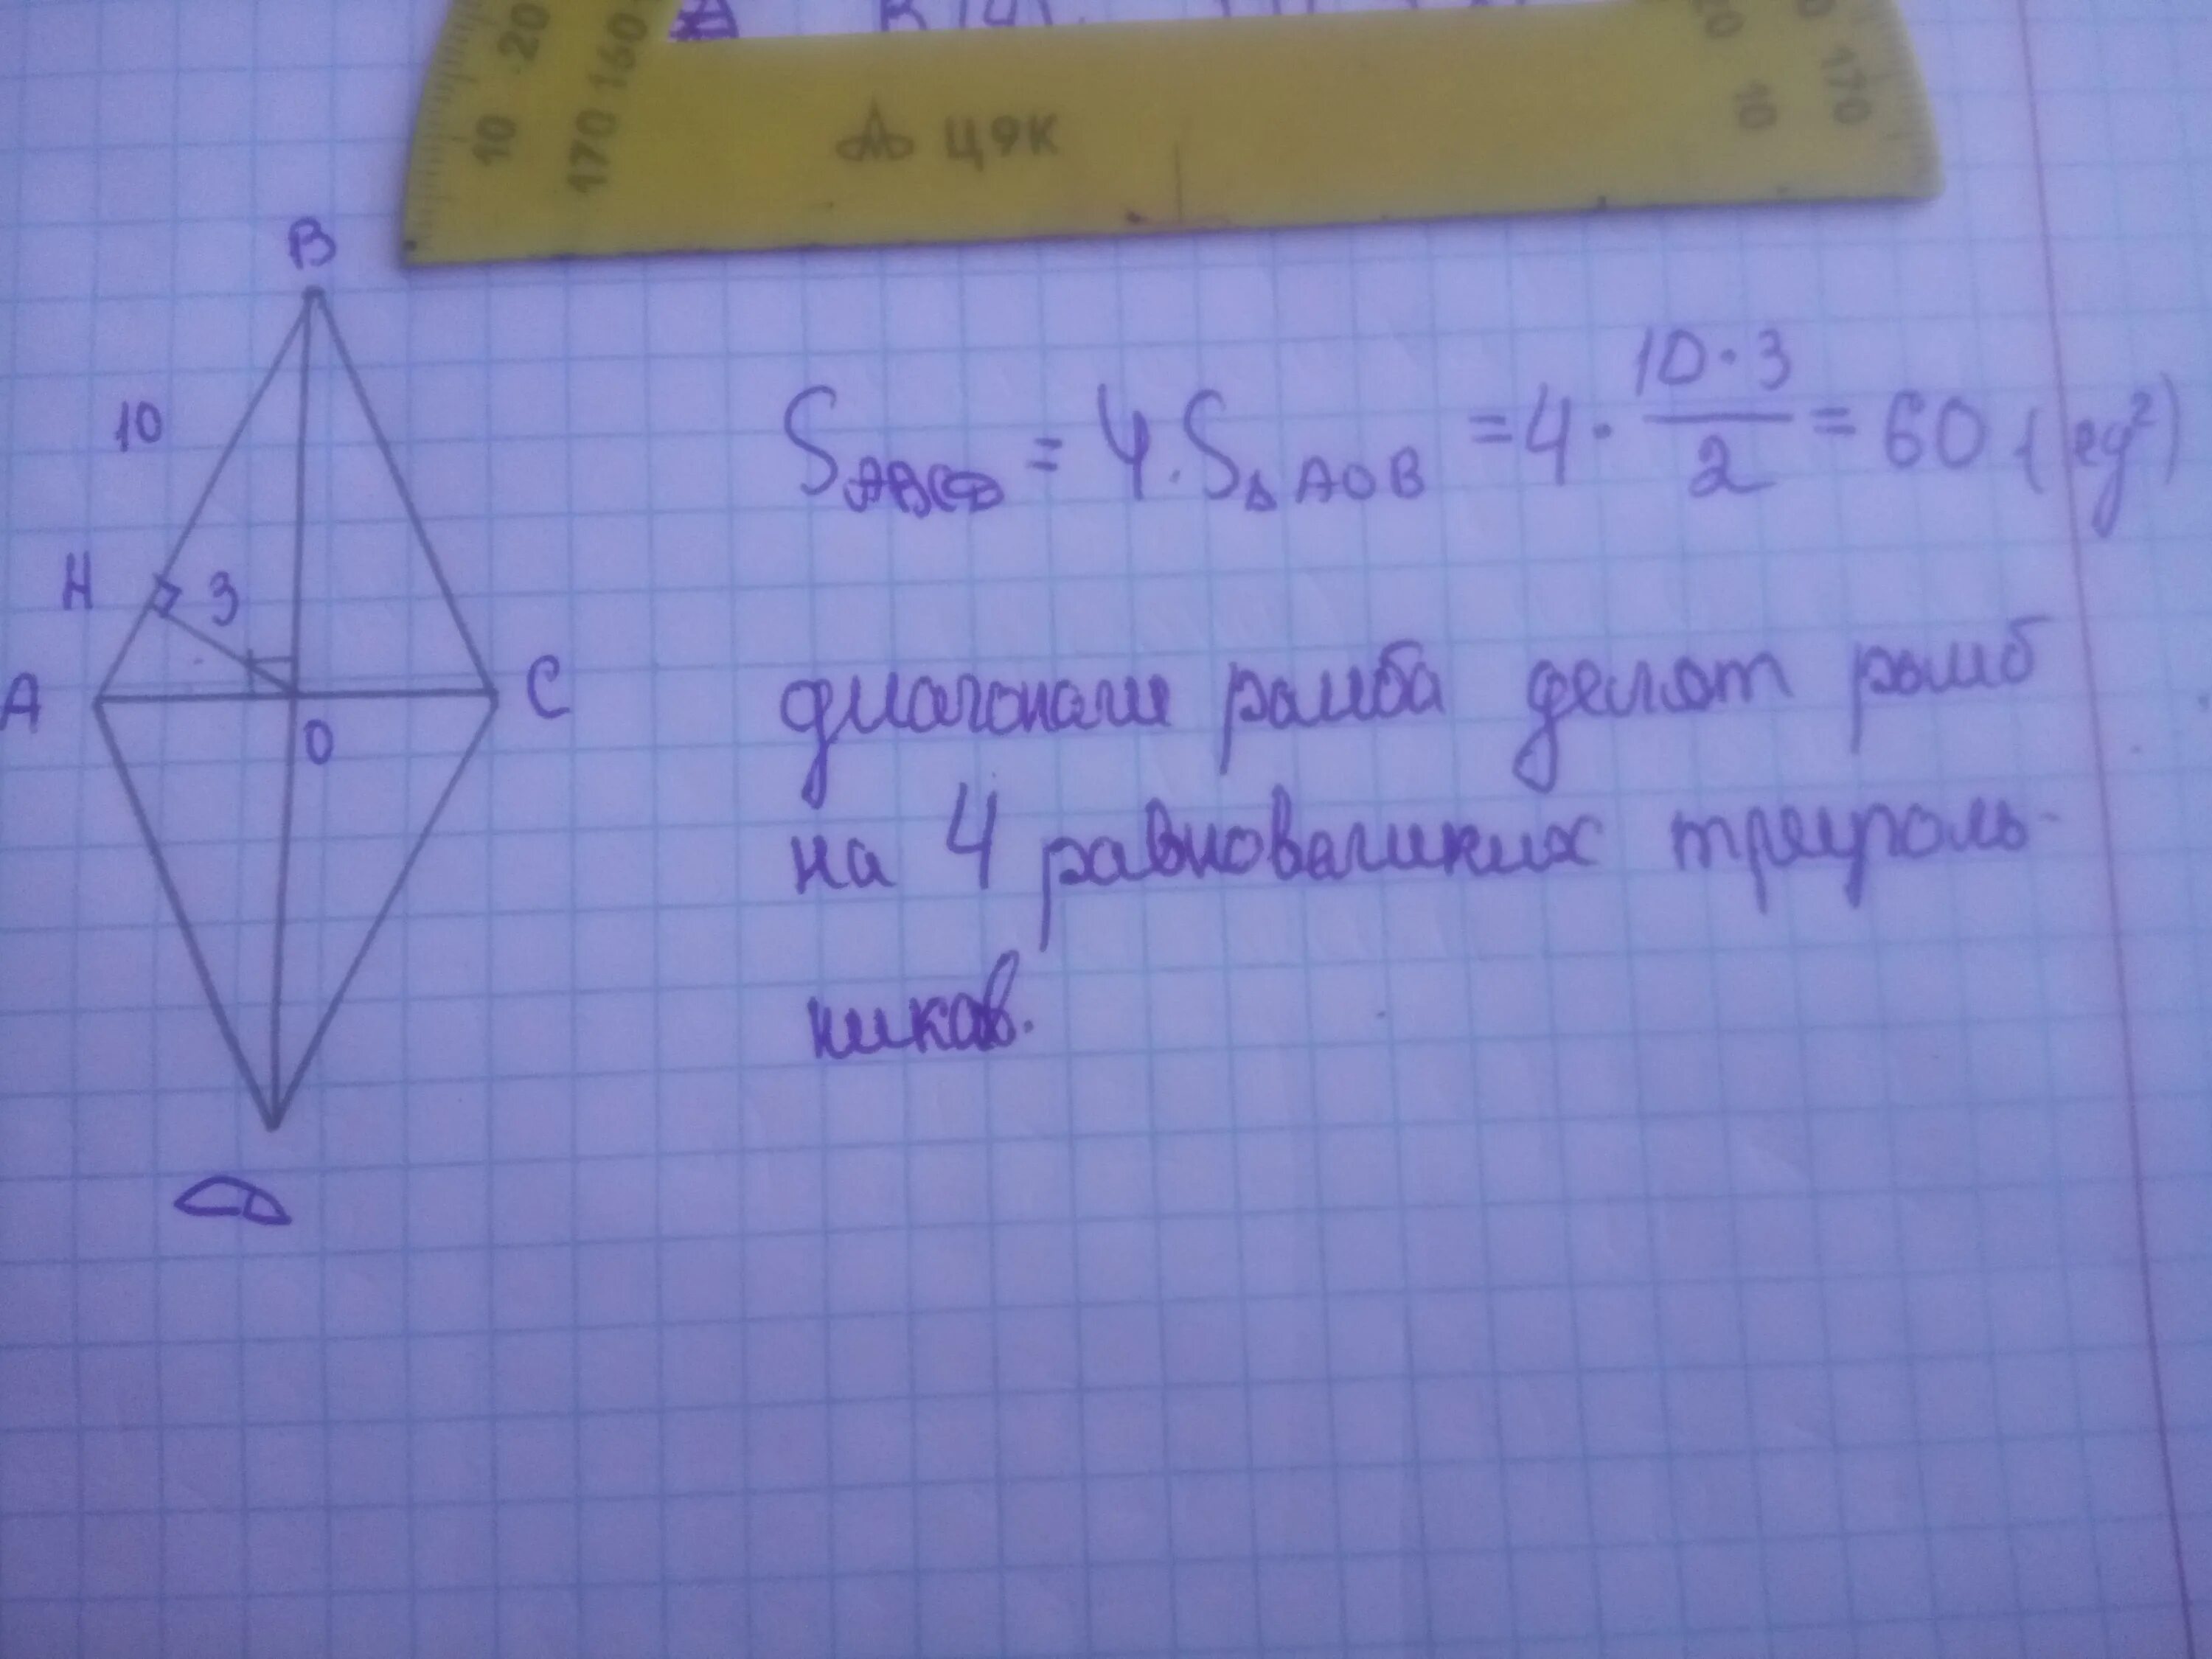 20
10
160
170
ЦЯК
20
10
170
B
10
H
3
A
C
O
D
S_ABCD = 4·S_Δ AOB = 4·(10·3)/2 = 60 (ед²)
диагонали ромба делят ромб
на 4 равновеликих треуголь-
ников.